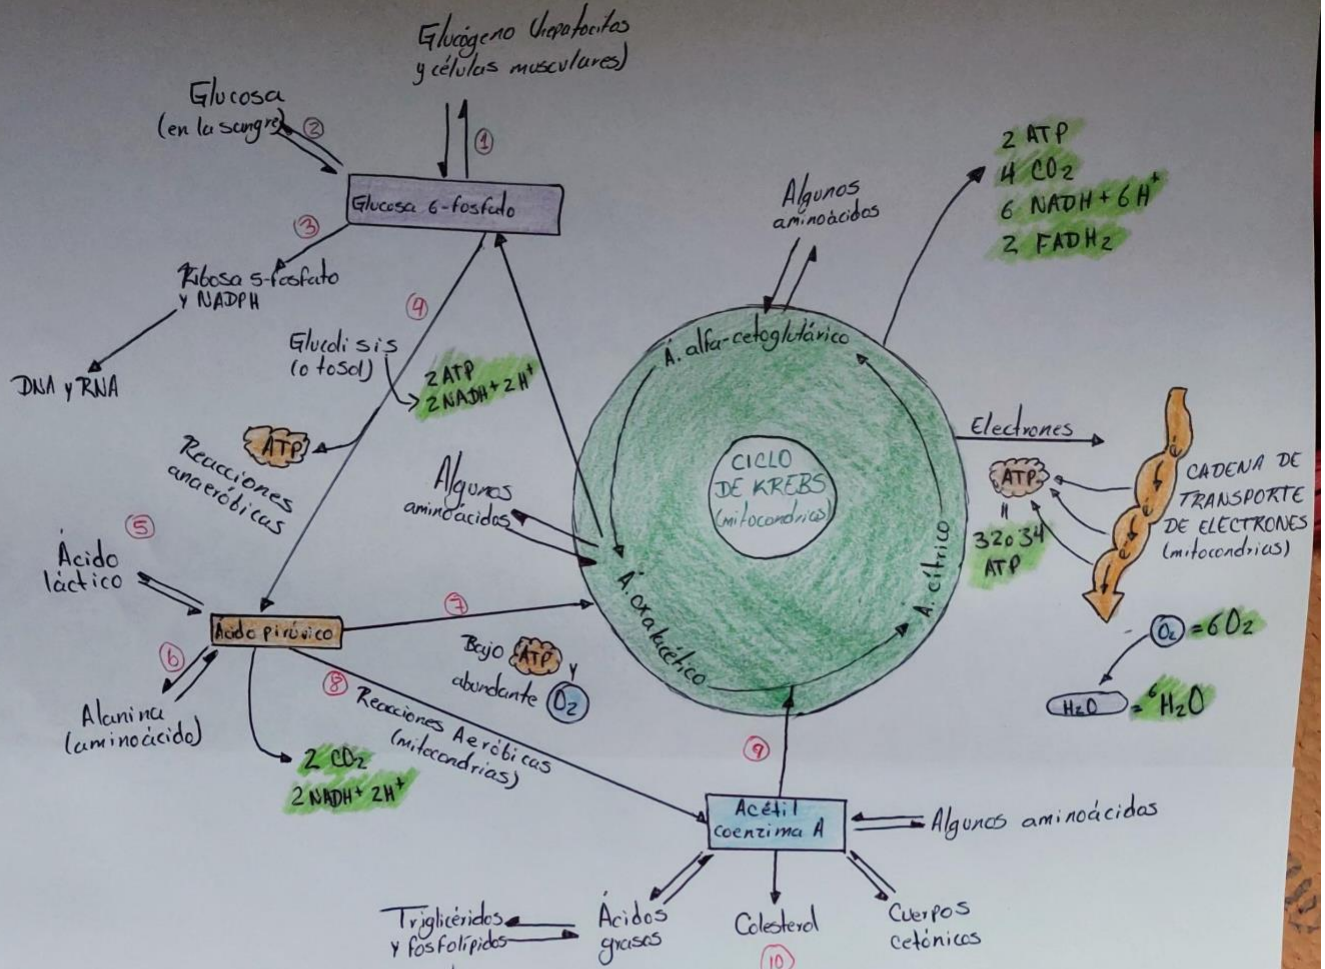 Glucógeno (hepatocitos
y células musculares)
Glucosa
(en la sangre)
2
1
Glucosa 6-fosfato
3
Ribosa 5-fosfato
y NADPH
DNA y RNA
4
Glucolisis
(o tosol)
2 ATP
2 NADH + 2H+
ATP
Reacciones
anaeróbicas
Algunos
aminoácidos
5
Ácido
láctico
Ácido pirúvico
6
Alanina
(aminoácido)
7
Bajo ATP y
abundante O2
8
Reacciones Aeróbicas
(mitocondrias)
2 CO2
2 NADH + 2H+
Algunos
aminoácidos
Á. alfa-cetoglutárico
CICLO
DE KREBS
(mitocondrias)
Á. oxalacético
Á. cítrico
2 ATP
4 CO2
6 NADH + 6H+
2 FADH2
Electrones
ATP
=
32 o 34
ATP
é
e
e
e
CADENA DE
TRANSPORTE
DE ELECTRONES
(mitocondrias)
O2 = 6O2
H2O = 6H2O
9
Acétil
coenzima A
Algunos aminoácidos
Triglicéridos
y fosfolípidos
Ácidos
grasos
Colesterol
10
Cuerpos
cetónicos